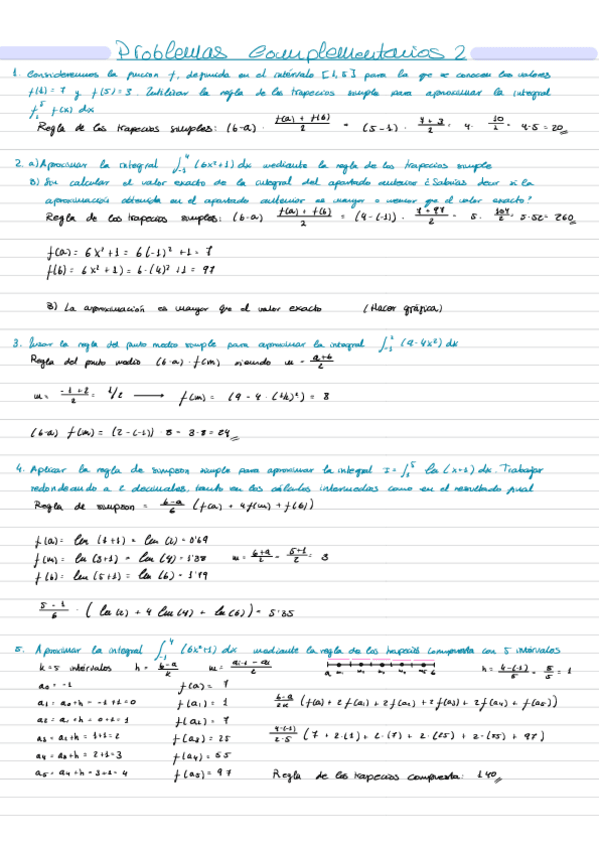 Problemas Complementarios 2
1. Consideremos la funcion f, definida en el intérvalo [1,5] para la que se conocen los valores
f(1) = 7 y f(5) = 3. Zutilizar la regla de los trapecios simple para aproximar la integral
∫₁⁵ f(x) dx
Regla de los trapecios simples: (b-a) · (f(a) + f(b))/2 = (5-1) · (7+3)/2 = 4 · 10/2 = 4·5 = 20
2. a) Aproximar la integral ∫₋₁⁴ (6x²+1) dx mediante la regla de los trapecios simple
B) Sin calcular el valor exacto de la integral del apartado anterior ¿Sabrias decir si la
aproximación obtenida en el apartado anterior es mayor o menor que el valor exacto?
Regla de los trapecios simples: (b-a) (f(a) + f(b))/2 = (4-(-1)) · (7+97)/2 = 5 · 104/2 = 5·52 = 260
f(a) = 6x² + 1 = 6(-1)² + 1 = 7
f(b) = 6x² + 1) = 6·(4)² + 1 = 97
B) La aproximación es mayor que el valor exacto (Hacer gráfica)
3. Usar la regla del punto medio simple para aproximar la integral ∫₋₁² (9-4x²) dx
Regla del punto medio (b-a) · f(m) siendo m = (a+b)/2
m = (-1+2)/2 = 1/2 ⟶ f(m) = (9 - 4 · (1/2)²) = 8
(b-a) f(m) = (2-(-1)) · 8 = 3·8 = 24
4. Aplicar la regla de simpson simple para aproximar la integral I = ∫₁⁵ ln (x+1) dx. Trabajar
redondeando a 2 decimales, tanto en los cálculos intermedios como en el resultado final
Regla de simpson = (b-a)/6 (f(a) + 4f(m) + f(b))
f(a) = ln (1+1) = ln (2) = 0'69
f(m) = ln (3+1) = ln (4) = 1'38 m = (b+a)/2 = (5+1)/2 = 3
f(b) = ln (5+1) = ln (6) = 1'79
(5-1)/6 · (ln(2) + 4 ln(4) + ln(6)) = 5'35
5. Aproximar la integral ∫₋₁⁴ (6x²+1) dx mediante la regla de los trapecios compuesta con 5 intérvalos
k=5 intérvalos h = (b-a)/k h = (4-(-1))/5 = 5/5 = 1
a₀ = -1 f(a) = 7
a₁ = a₀+h = -1+1=0 f(a₁) = 1 (b-a)/2k (f(a) + 2f(a₁) + 2f(a₂) + 2f(a₃) + 2f(a₄) + f(a₅))
a₂ = a₁+h = 0+1=1 f(a₂) = 7
a₃ = a₂+h = 1+1=2 f(a₃) = 25 (4-(-1))/2·5 (7 + 2·(1) + 2·(7) + 2·(25) + 2·(55) + 97)
a₄ = a₃+h = 2+1=3 f(a₄) = 55
a₅ = a₄+h = 3+1=4 f(a₅) = 97 Regla de los trapecios compuesta: 140